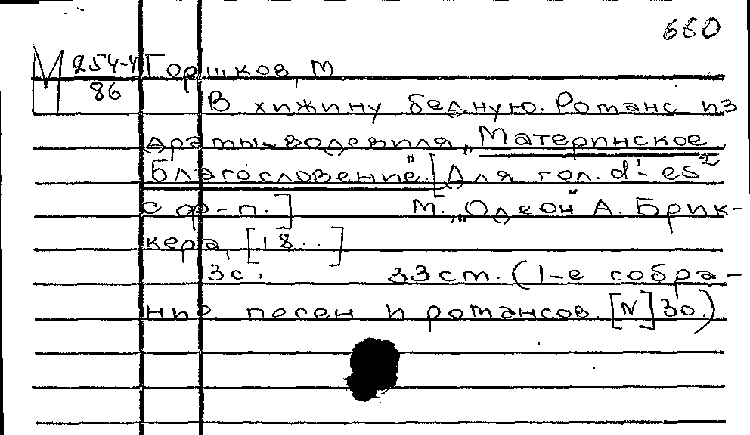 660
М 254-4/86 Горшков, М.
В хижину бедную. Романс из
драмы-водевиля „Материнское
благословение". [Для гол. d¹-es²
с ф-п.] М. „Одеон" А. Брик-
кера, [18..]
3 с. 33 см. (1-е собра-
ние песен и романсов. [N] 30.)